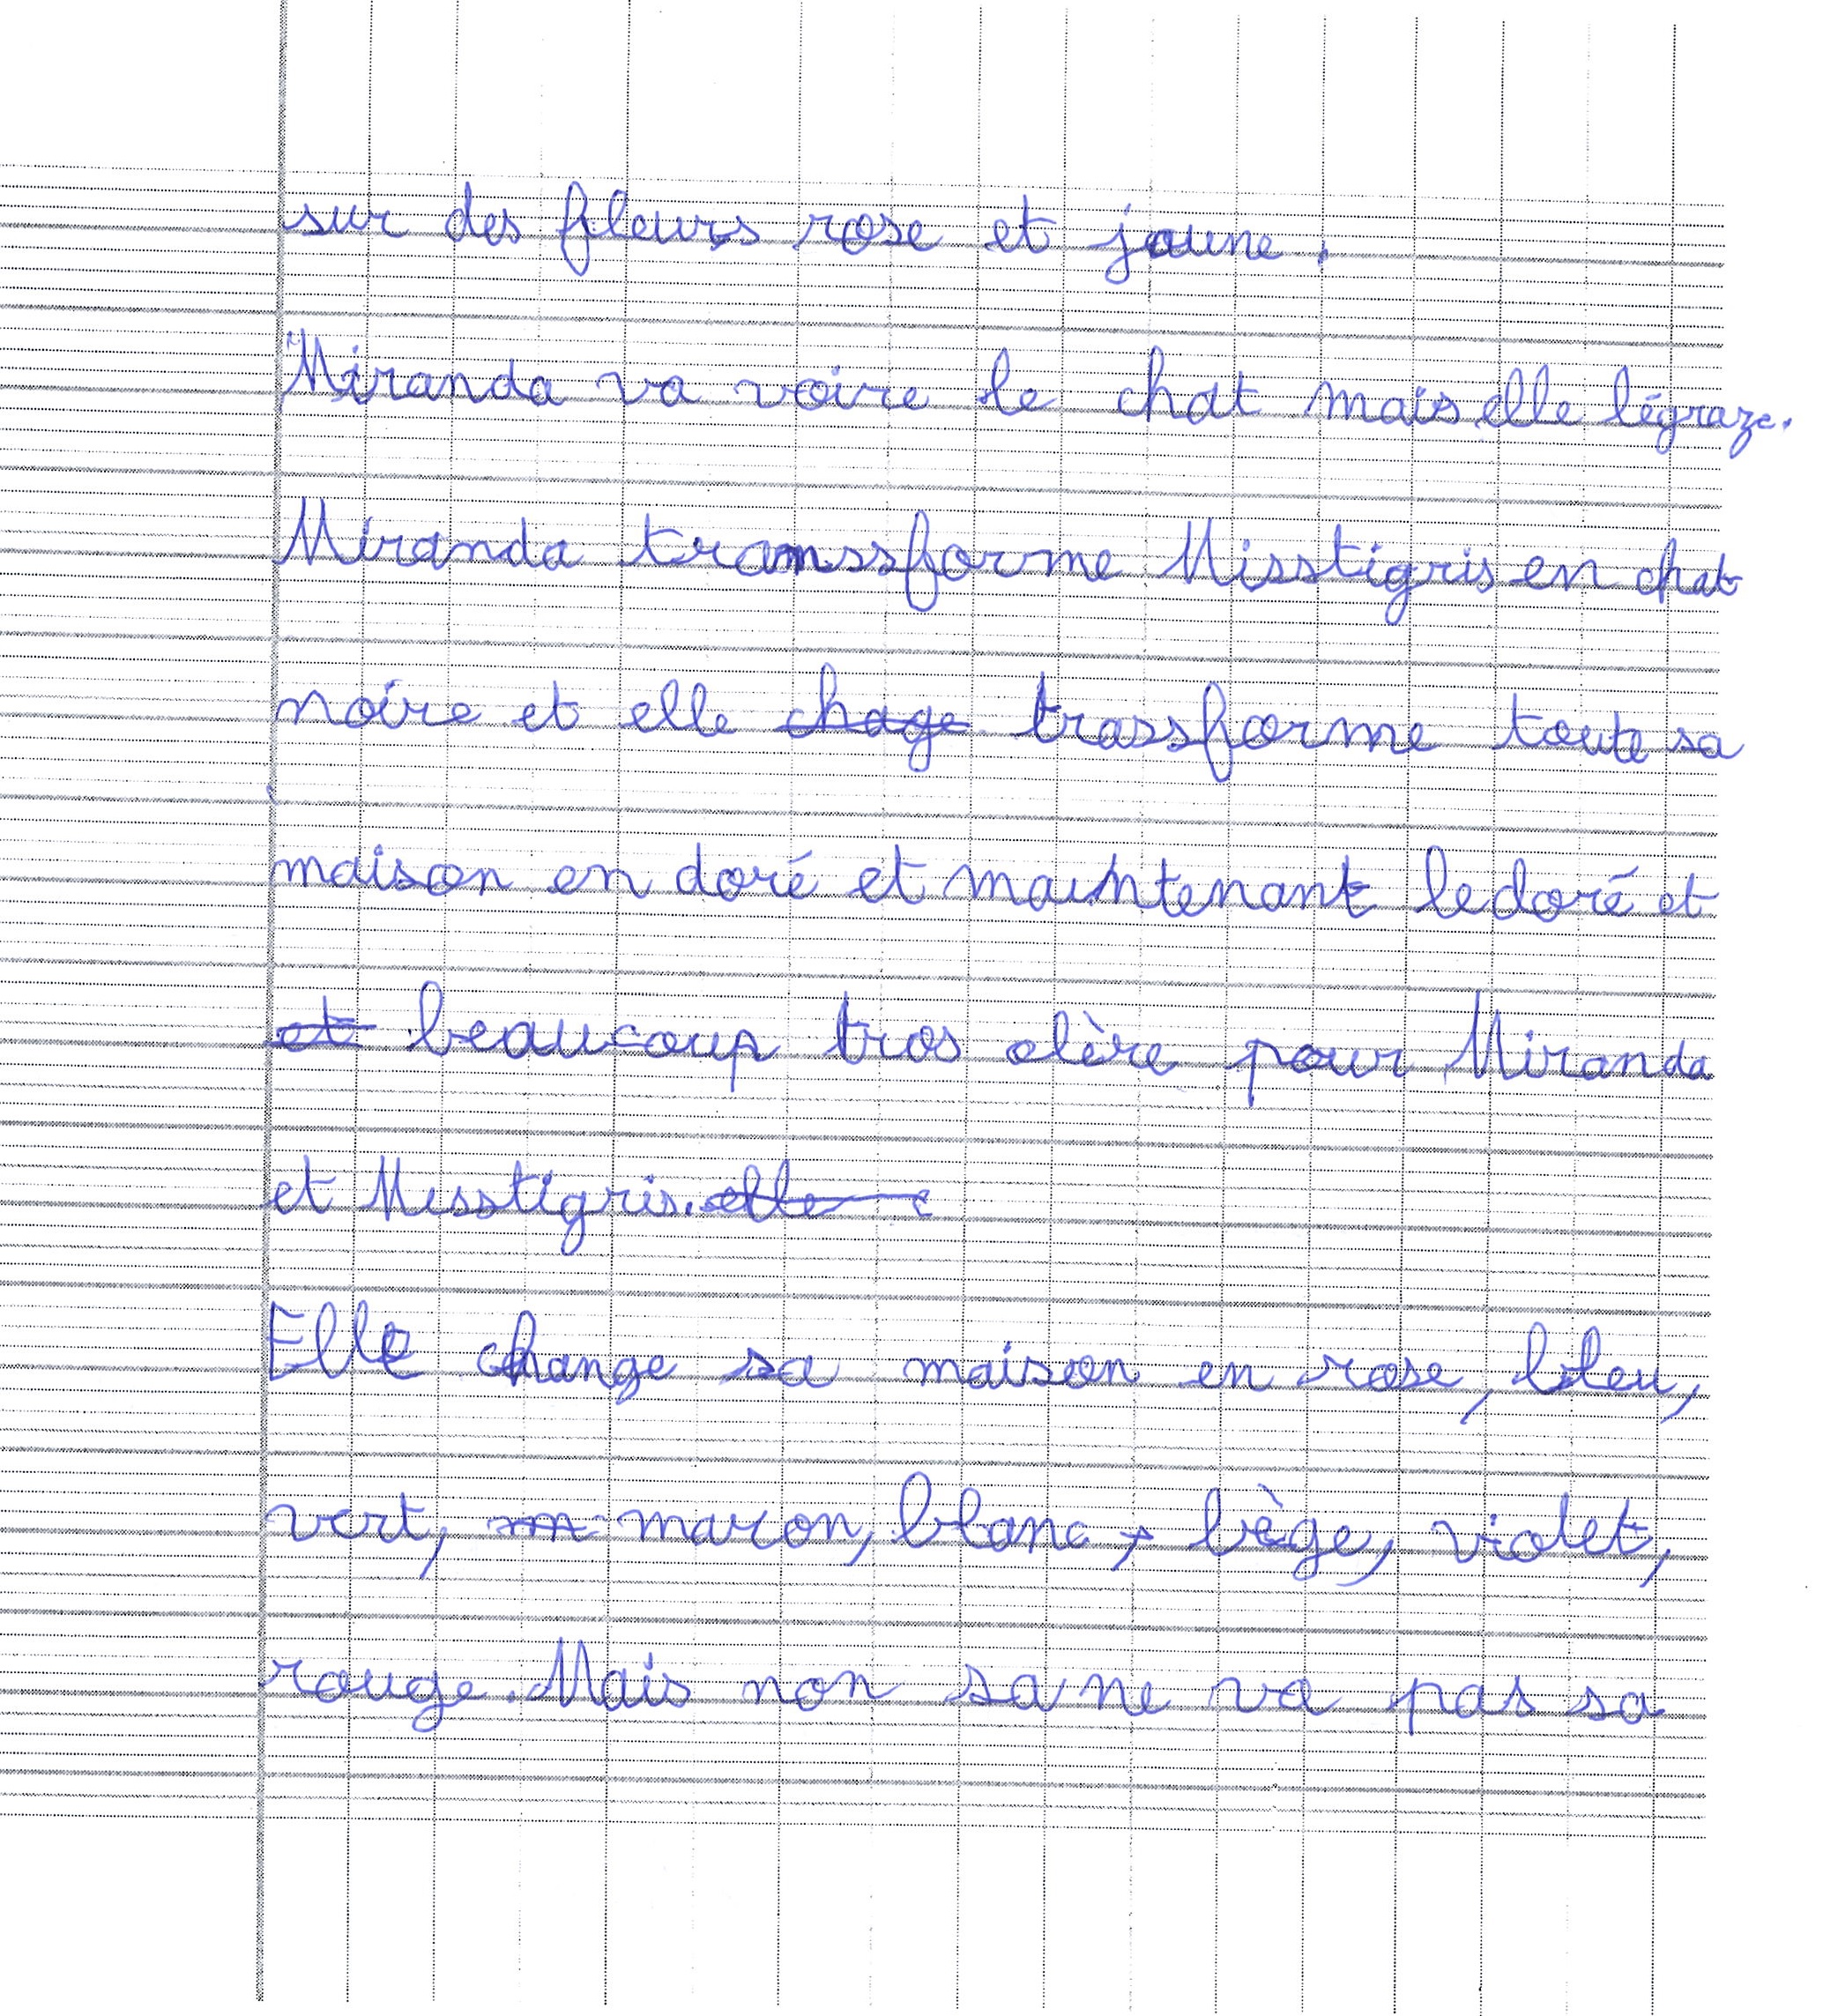 sur des fleurs rose et jaune.
Miranda va voire le chat mais elle légraze.
Miranda transsforme Misstigris en chat
noire et elle chage trassforme toute sa
maison en doré et maintenant le doré et
et beaucoup tros clère pour Miranda
et Misstigris. elle c
Elle change sa maison en rose, bleu,
vert, m maron, blanc, bège, violet,
rouge. Mais non sa ne va pas sa